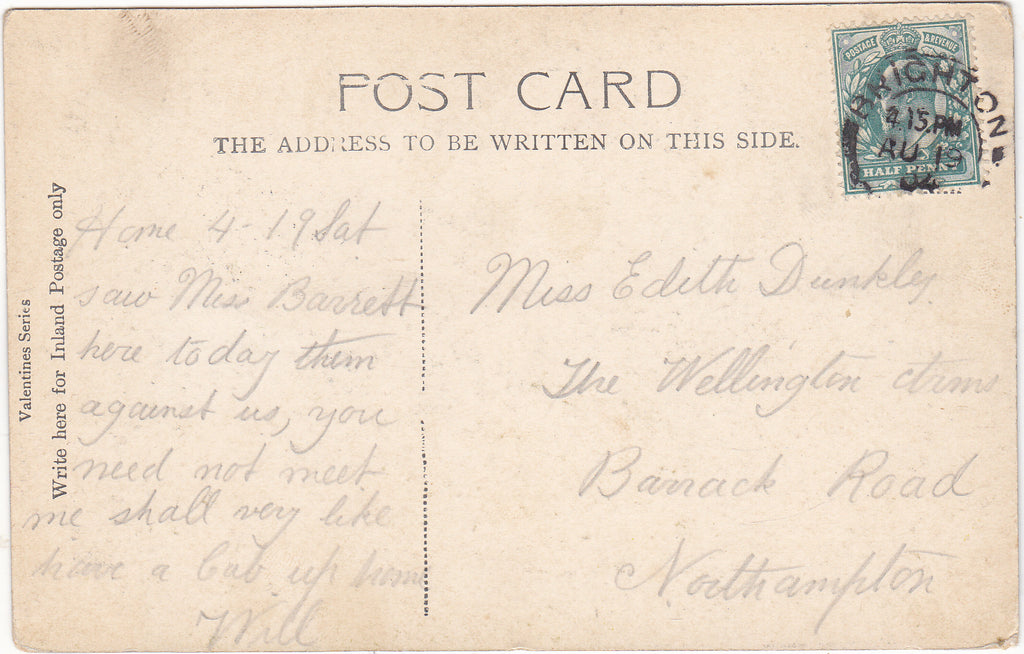 POST CARD
THE ADDRESS TO BE WRITTEN ON THIS SIDE.
POSTAGE & REVENUE
HALF PENNY
BRIGHTON
4.15.PM
AU 19
04
Valentines Series
Write here for Inland Postage only
Home 4-19 Sat
saw Miss Barrett
here today them
against us, you
need not meet
me shall very like
have a cab up home
Will
Miss Edith Dunkley
The Wellington Arms
Barrack Road
Northampton